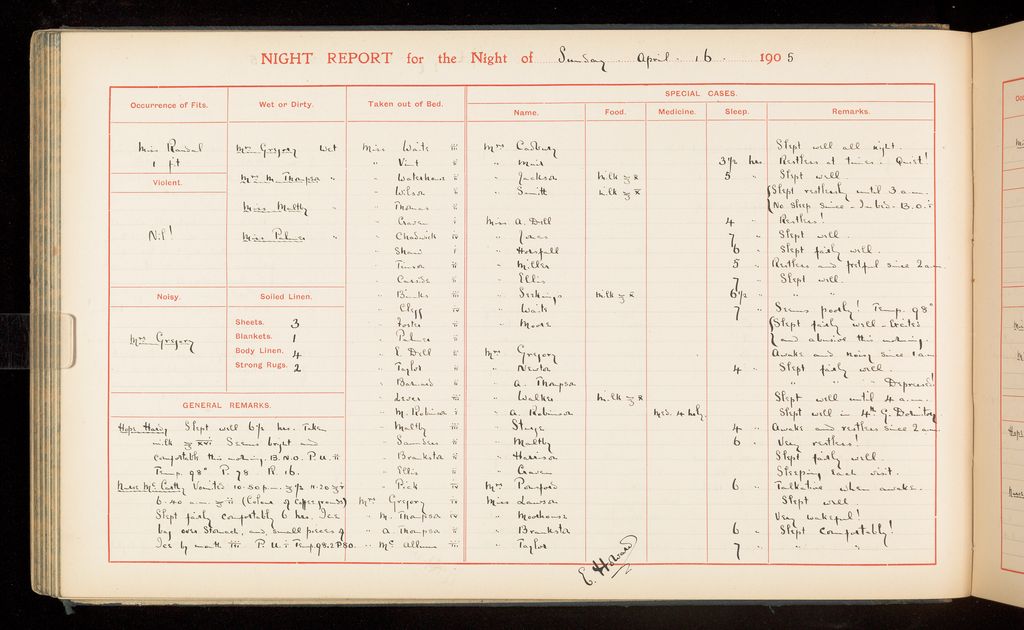 NIGHT REPORT for the Night of Sunday April 16 1905
Occurrence of Fits.
Miss Randal
1 fit
Violent.
Nil!
Noisy.
Mrs Gregory
Wet or Dirty.
Mrs Gregory Wet
Mrs M. Thompson "
Miss Maltby "
Miss Palmer "
Soiled Linen.
Sheets. 3
Blankets. 1
Body Linen. 4
Strong Rugs. 2
GENERAL REMARKS.
Hope Hardy Slept well 6½ hrs. Taken
milk ʒ xvi Seems bright and
comfortable this morning. B.N.O. P.U. ii
Temp. 98° P. 78 R. 16.
Nurse Mc Carthy Vomited 10-50 p.m.
6-40 a.m. (Colour of coffee grounds)
Slept fairly comfortably 6 hrs. Ice
bag over Stomach, and small pieces of
Ice by mouth P.U. i Temp 98.2 P 80.
Taken out of Bed.
Miss Waite iii
" Vint ii
" Waterhouse ii
" Wilson ii
" Thomas ii
" Craven i
" Chadwick iv
" Shaw i
" Timson ii
" Binks iii
" Clegg iv
" Foster ii
" Palmer ii
" E. Dell ii
" Taylor ii
" Barnard ii
" Lever iii
" M. Robinson i
" Maltby iii
" Saunders ii
" Brankston ii
" Ellis ii
" Pick iv
Mrs Gregory iv
" M. Thompson iv
" A Thompson ii
" Mc Allum iii
SPECIAL CASES.
Name. Food. Medicine. Sleep. Remarks.
Mrs Cadbury Slept well all night.
" Muir 3½ hrs Restless at times. Quiet!
" Jackson Milk ʒ x 5 " Slept well.
" Smith Milk ʒ x Slept restlessly until 3 a.m.
No sleep since - In bed - B.O. i
Miss A. Dell 4 " Restless!
" Jones 7 " Slept well.
" Horsfall 6 " Slept fairly well.
" Miller 5 " Restless and fretful since 2 a.m.
" Ellis 7 " Slept well.
" Serkings Milk ʒ x 6½ " " "
" Waite 7 " Seems poorly! Temp. 98°
" Moore Slept fairly well - Excited
and abusive this morning.
Mrs Gregory Awake and noisy since 1 a.m.
" Newton 4 " Slept fairly well.
" A. Thompson " " " Depressed!
" Walker Milk ʒ x Slept well until 4 a.m.
" A. Robinson Med. 4 hrly. Slept well in 4th G. Dormitory
" Sturge 4 " Awake and restless since 2 a.m.
" Maltby 6 " Very restless!
" Harrison Slept fairly well.
" Craven Sleeping each visit.
Mrs Pomford 6 " Talkative when awake.
Miss Lawson Slept well
" Moorhouse Very wakeful!
" Brankston 6 " Slept comfortably!
" Taylor 7 " " "
E. Howard